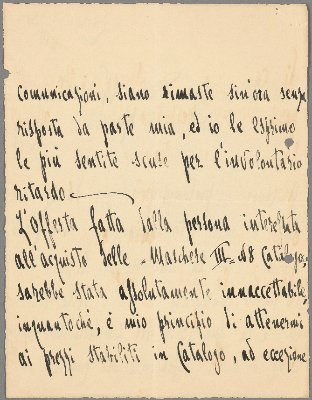 comunicazioni, siano rimaste sin'ora senza
risposta da parte mia, ed io le esprimo
le più sentite scuse per l'involontario
ritardo
L'offerta fatta dalla persona interessata
all'acquisto delle "Maschere III=68 Catalogo,
sarebbe stata assolutamente inaccettabile,
inquantochè, è mio principio di attenermi
ai prezzi stabiliti in Catalogo, ad eccezione